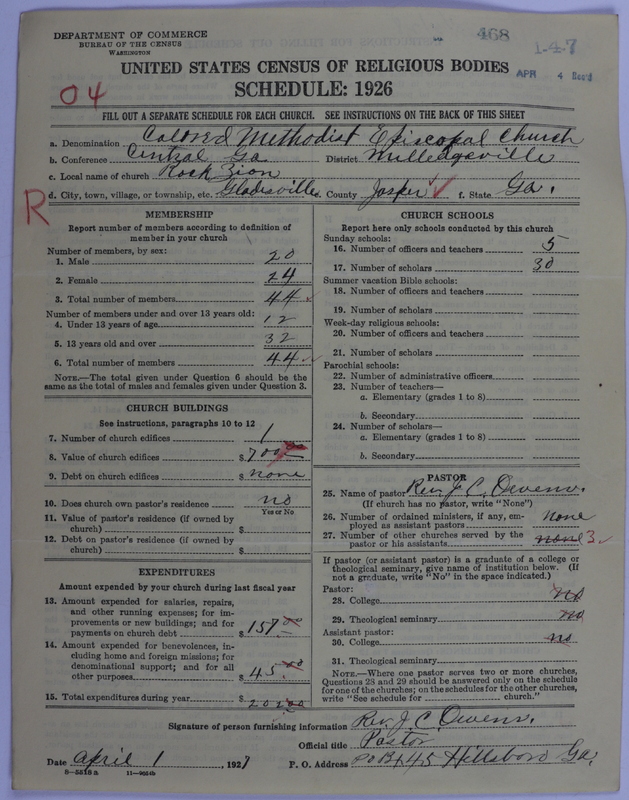 DEPARTMENT OF COMMERCE
BUREAU OF THE CENSUS
WASHINGTON
468
1-4-7
APR 4 Rec'd
UNITED STATES CENSUS OF RELIGIOUS BODIES
SCHEDULE: 1926
04
FILL OUT A SEPARATE SCHEDULE FOR EACH CHURCH. SEE INSTRUCTIONS ON THE BACK OF THIS SHEET
a. Denomination Colored Methodist Episcopal Church
b. Conference Central Ga District Milledgeville
c. Local name of church Rock Zion
d. City, town, village, or township, etc. Gladesville e. County Jasper f. State Ga.
R
MEMBERSHIP
Report number of members according to definition of member in your church
Number of members, by sex:
1. Male 20
2. Female 24
3. Total number of members 44
Number of members under and over 13 years old:
4. Under 13 years of age 12
5. 13 years old and over 32
6. Total number of members 44
NOTE.—The total given under Question 6 should be the same as the total of males and females given under Question 3.
CHURCH BUILDINGS
See instructions, paragraphs 10 to 12
7. Number of church edifices 1
8. Value of church edifices $700.00
9. Debt on church edifices $ none
10. Does church own pastor's residence no
Yes or No
11. Value of pastor's residence (if owned by church) $
12. Debt on pastor's residence (if owned by church) $
EXPENDITURES
Amount expended by your church during last fiscal year
13. Amount expended for salaries, repairs, and other running expenses; for improvements or new buildings; and for payments on church debt $157.00
14. Amount expended for benevolences, including home and foreign missions; for denominational support; and for all other purposes $45.00
15. Total expenditures during year $202.00
CHURCH SCHOOLS
Report here only schools conducted by this church
Sunday schools:
16. Number of officers and teachers 5
17. Number of scholars 30
Summer vacation Bible schools:
18. Number of officers and teachers
19. Number of scholars
Week-day religious schools:
20. Number of officers and teachers
21. Number of scholars
Parochial schools:
22. Number of administrative officers
23. Number of teachers—
a. Elementary (grades 1 to 8)
b. Secondary
24. Number of scholars—
a. Elementary (grades 1 to 8)
b. Secondary
PASTOR
25. Name of pastor Rev. J. C. Owens.
(If church has no pastor, write "None")
26. Number of ordained ministers, if any, employed as assistant pastors none
27. Number of other churches served by the pastor or his assistants none 3
If pastor (or assistant pastor) is a graduate of a college or theological seminary, give name of institution below. (If not a graduate, write "No" in the space indicated.)
Pastor:
28. College no
29. Theological seminary no
Assistant pastor:
30. College no
31. Theological seminary
NOTE.—Where one pastor serves two or more churches, Questions 28 and 29 should be answered only on the schedule for one of the churches; on the schedules for the other churches, write "See schedule for church."
Signature of person furnishing information Rev. J. C. Owens.
Official title Pastor
Date April 1, 1927 P. O. Address PO Bx 45 Hillsboro Ga.
8—5518 a 11—9554b